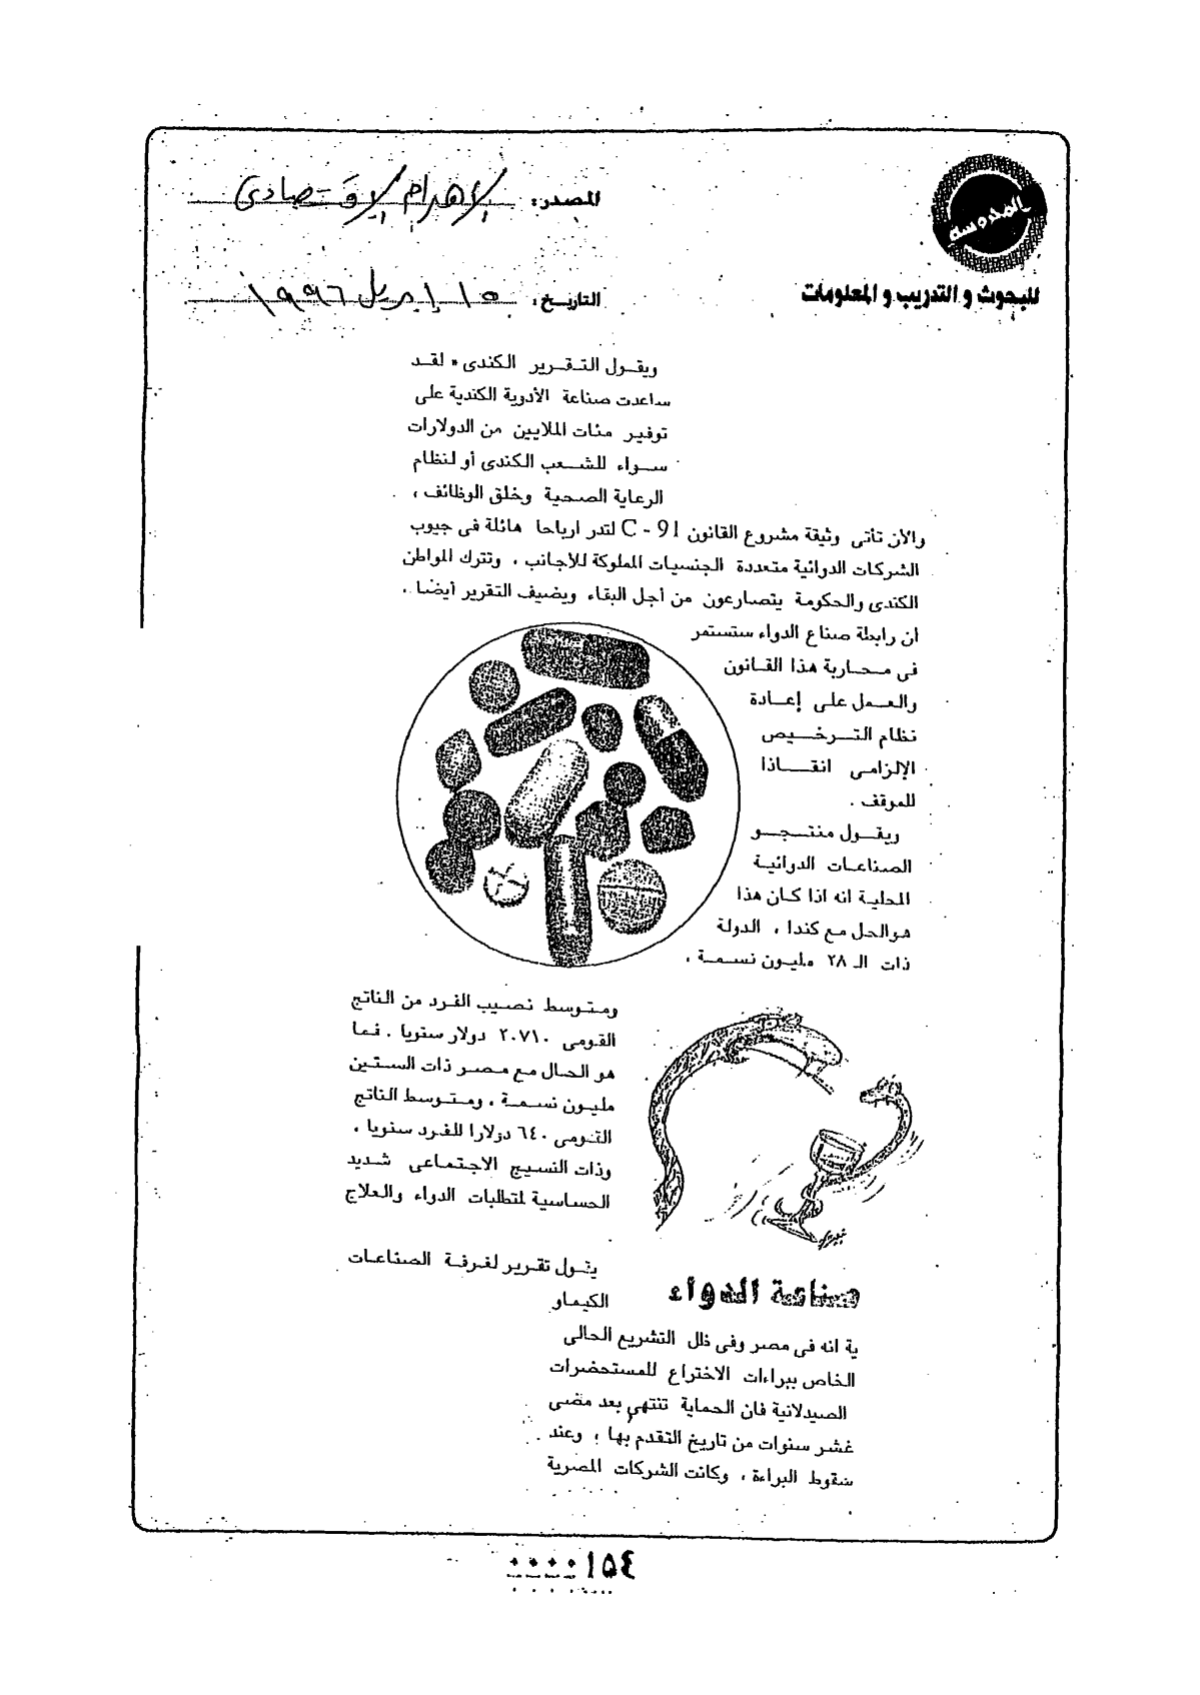 المدوسة
للبحوث و التدريب و المعلومات
المصدر: الأهرام الإقتصادى
التاريخ: ١٥ إبريل ١٩٩٦
ويقول التقرير الكندى " لقد
ساعدت صناعة الأدوية الكندية على
توفير مئات الملايين من الدولارات
سواء للشعب الكندى أو لنظام
الرعاية الصحية وخلق الوظائف ،
والأن تأتى وثيقة مشروع القانون C - 91 لتدر ارباحا هائلة فى جيوب
الشركات الدوائية متعددة الجنسيات المملوكة للأجانب ، وتترك المواطن
الكندى والحكومة يتصارعون من أجل البقاء ويضيف التقرير أيضا .
ان رابطة صناع الدواء ستستمر
فى محاربة هذا القانون
والعمل على إعادة
نظام الترخيص
الإلزامى انقاذا
للموقف .
ويقول منتجو
الصناعات الدوائية
المحلية انه اذا كان هذا
هوالحل مع كندا ، الدولة
ذات الـ ٢٨ مليون نسمة ،
ومتوسط نصيب الفرد من الناتج
القومى ٢٠٧١٠ دولار سنويا . فما
هو الحال مع مصر ذات الستين
مليون نسمة ، ومتوسط الناتج
القومى ٦٤٠ دولارا للفرد سنويا ،
وذات النسيج الاجتماعى شديد
الحساسية لمتطلبات الدواء والعلاج
صناعة الدواء
يقول تقرير لغرفة الصناعات
الكيماو
ية انه فى مصر وفى ذلل التشريع الحالى
الخاص ببراءات الاختراع للمستحضرات
الصيدلانية فان الحماية تنتهى بعد مضى
عشر سنوات من تاريخ التقدم بها ، وعند
سقوط البراءة ، وكانت الشركات المصرية
٠٠٠٠١٥٤